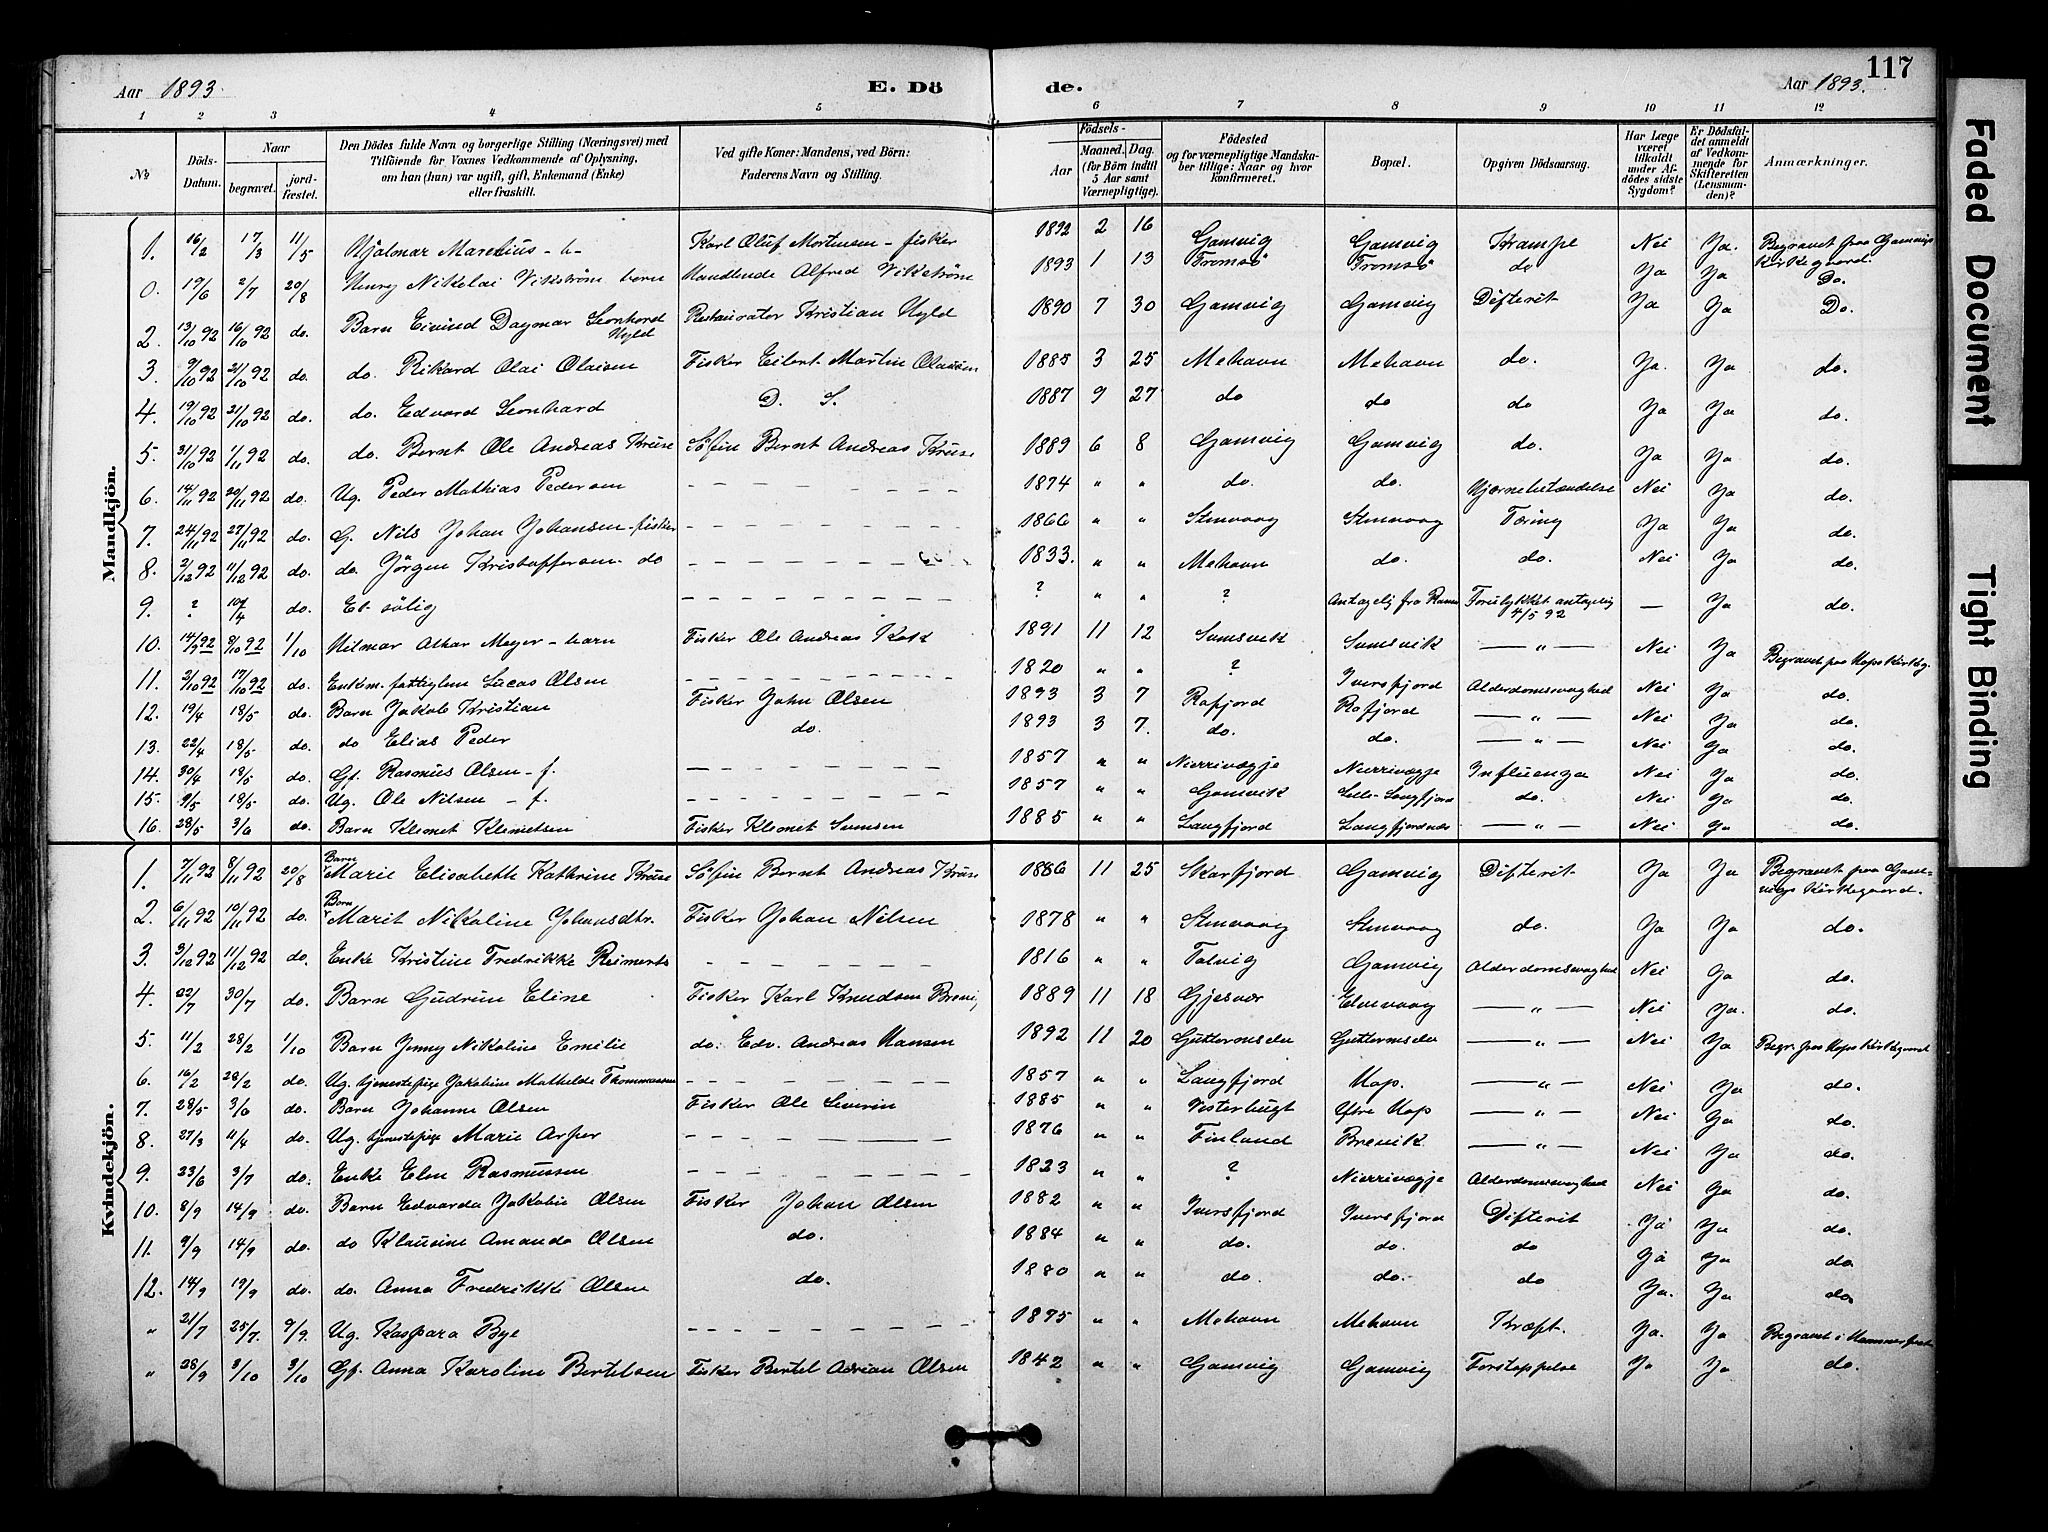 117
Aar 1893. E. Dö de. Aar 1893.
1 2 3 4 5 6 7 8 9 10 11 12
No Döds-Datum. Naar begravet. jordfæstet. Den Dödes fulde Navn og borgerlige Stilling (Næringsvei) med Tilföiende for Voxnes Vedkommende af Oplysning, om han (hun) var ugift, gift, Enkemand (Enke) eller fraskilt. Ved gifte Koner: Mandens, ved Börn: Faderens Navn og Stilling. Födsels- Aar Maaned. Dag. (for Börn indtil 5 Aar samt Værnepligtige). Födested og for værnepligtige Mandskaber tillige: Naar og hvor konfirmeret. Bopæl. Opgiven Dödsaarsag. Har Læge været tilkaldt under Afdödes sidste Sygdom? Er Dödsfaldet anmeldt af Vedkommende for Skifteretten (Lensmanden)? Anmærkninger.
Mandkjön.
1. 16/2 17/3 11/5 Hjalmar Marelius - b- Karl Oluf Mortensen - fisker 1892 2 16 Gamvig Gamvig Krampe Nei Ja. Begravet paa Gamvigs Kirkegaard.
0. 19/6 2/7 20/8 Henry Nikolai Vikström barn Handlende Alfred Vikström 1893 1 13 Tromsö Tromsö do Ja Ja Do.
2. 13/10 92 16/10 92 do. Barn Eivind Dagmar Leonhard Hyld Restauratør Kristian Hyld 1890 7 30 Gamvig Gamvig Difterit Ja Ja Do.
3. 9/10 92 21/10 92 do. do. Rikard Olai Olaisen Fisker Eilert Martin Olaisen 1885 3 25 Mehavn Mehavn do. Ja. Ja do.
4. 19/10 92 21/10 92 do. do. Edvard Leonhard D. S. 1887 9 27 do do do Ja Ja do.
5. 31/10 92 1/11 92 do. do. Bernt Ole Andreas Kruse Söfin Bernt Andreas Kruse 1889 6 8 Gamvig Gamvig do. Ja Ja do.
6. 14/11 92 20/11 92 do. Ug. Peder Mathias Pedersen - - - 1874 " " do. do. Hjernebetændelse Nei Ja do.
7. 24/11 92 27/11 92 do. G. Nils Johan Johansen - fisker - - - 1866 " " Stenvaag Stenvaag Tæring Ja Ja do.
8. 2/12 92 11/12 92 do. do. Jörgen Kristoffersen do - - - 1833. " " Mehavn do. do. Nei Ja do.
9. ? 10/4 do. Et. sölig - - - ? " " ? Antagelig fra Forulykket antagelig 4/5 92 — Ja do.
10. 14/9 92 8/10 92 1/10 Hilmar Meyer - barn Fisker Ole Andreas 1891 11 12 Sumsvik Sumsvik — " — Nei Ja Begravet paa Hops Kirkeg.
11. 2/10 92 17/10 92 do. Enkem. fattiglem Lucas Olsen - - - 1820 " " ? Iversfjord Alderdomssvaghed Nei Ja do.
12. 19/4 18/5 do. Barn Jakob Kristian Fisker John Olsen 1893 3 7 Rafjord Rafjord — " — Nei Ja do.
13. 22/4 18/5 do. do Elias Peder do. 1893 3 7. do. do. — " — Nei Ja do.
14. 30/4 18/5 do. Gf. Rasmus Olsen - f. - - - 1857 " " Nierrivagje Nierrivagje Influenza Nei Ja do.
15. 9/5 18/5 do. Ug. Ole Nilsen - f. - - - 1857 " " Gamvik Lille-Langfjord do. Nei Ja do.
16. 28/5 3/6 do. Barn Klemet Klemetsen Fisker Klemet Sumsen 1885 " " Langfjord Langfjordnæs — " — Nei Ja do.
Kvindekjön.
1. 7/11 92 8/11 92 20/8 Barn Marie Elisabeth Kathrine Kruse Söfin Bernt Andreas Kruse 1886 11 25 Skarfjord Gamvig Difterit Ja Ja Begravet paa Gamvigs Kirkegaard.
2. 6/11 92 10/11 92 do. Barn Marit Nikoline Johansdtr. Fisker Johan Nilsen 1878 " " Stenvaag Stenvaag do. Ja Ja do.
3. 3/12 92 11/12 92 do. Enke Kristine Fredrikke Reimerts - - - 1816 " " Talvig Gamvig Alderdomssvaghed Nei Ja do.
4. 22/7 30/7 do. Barn Gudrun Eline Fisker Karl Knudsen 1889 11 18 Gjesvær Elvevaag — " — Nei Ja. do.
5. 11/2 28/2 1/10 Barn Jenny Nikoline Emelie do. Edv. Andreas Hansen 1892 11 20 Guttormselv Guttormselv — " — Nei Ja Begr. paa Hops Kirkegaard
6. 16/2 28/2 do. Ug. tjenestepige Jakobine Mathilde Thommassen - - - 1857 " " Langfjord Hop. — " — Nei Ja do.
7. 28/5 3/6 do. Barn Johanne Olsen Fisker Ole Severin 1885 " " Vesterbugt Yfre Hop — " — Nei Ja do.
8. 27/3 11/4 do. Ug. tjenestepige Marie - - - 1876 " " Finland Brevik — " — Nei Ja do.
9. 23/6 3/7 do. Enke Elen Rasmussen - - - 1823 " " ? Nierrivagje Alderdomssvaghed Nei Ja do.
10. 8/9 14/9 do. Barn Edvarda Jakobie Olsen Fisker Johan Olsen 1882 " " Iversfjord Iversfjord Difterit Ja Ja do.
11. 9/9 14/9 do. do Klausine Amanda Olsen do. 1884 " " do. do. do Ja Ja do
12. 14/9 19/9 do. do. Anna Fredrikke Olsen do. 1880 " " do. do. do Ja. Ja do
" 21/7 25/7 9/9. Ug. Kaspara Bye - - - 1875 " " Mehavn Mehavn Kræft. Ja. Ja Begravet i Hammerfest
" 28/9 3/10 3/10 Gf. Anna Karoline Bertelsen Fisker Bertel Adrian Olsen 1842 " " Gamvig Gamvig Forstoppelse Ja Ja do.
Faded Document
Tight Binding